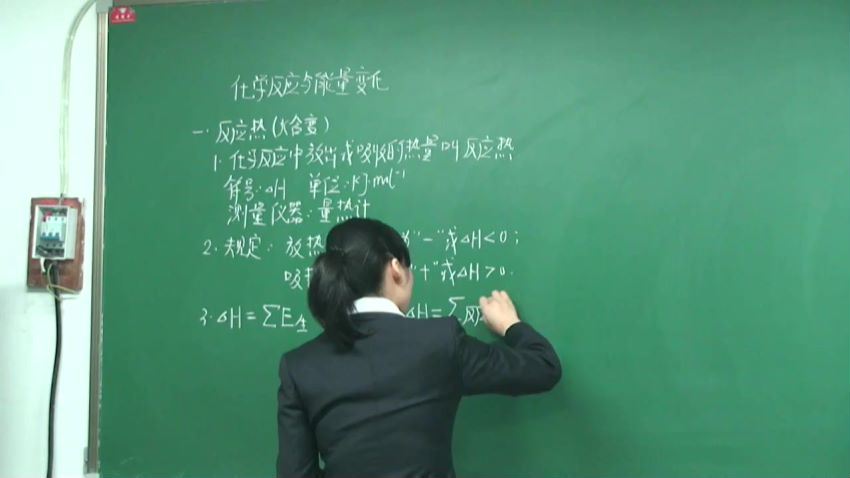 化学反应与能量变化
一. 反应热(焓变)
1. 化学反应中放出或吸收的热量叫反应热
符号:△H 单位:kJ·mol⁻¹
测量仪器:量热计
2. 规定: 放热 "-"或△H<0;
吸热 "+"或△H>0.
3. △H=∑E生 △H=∑反